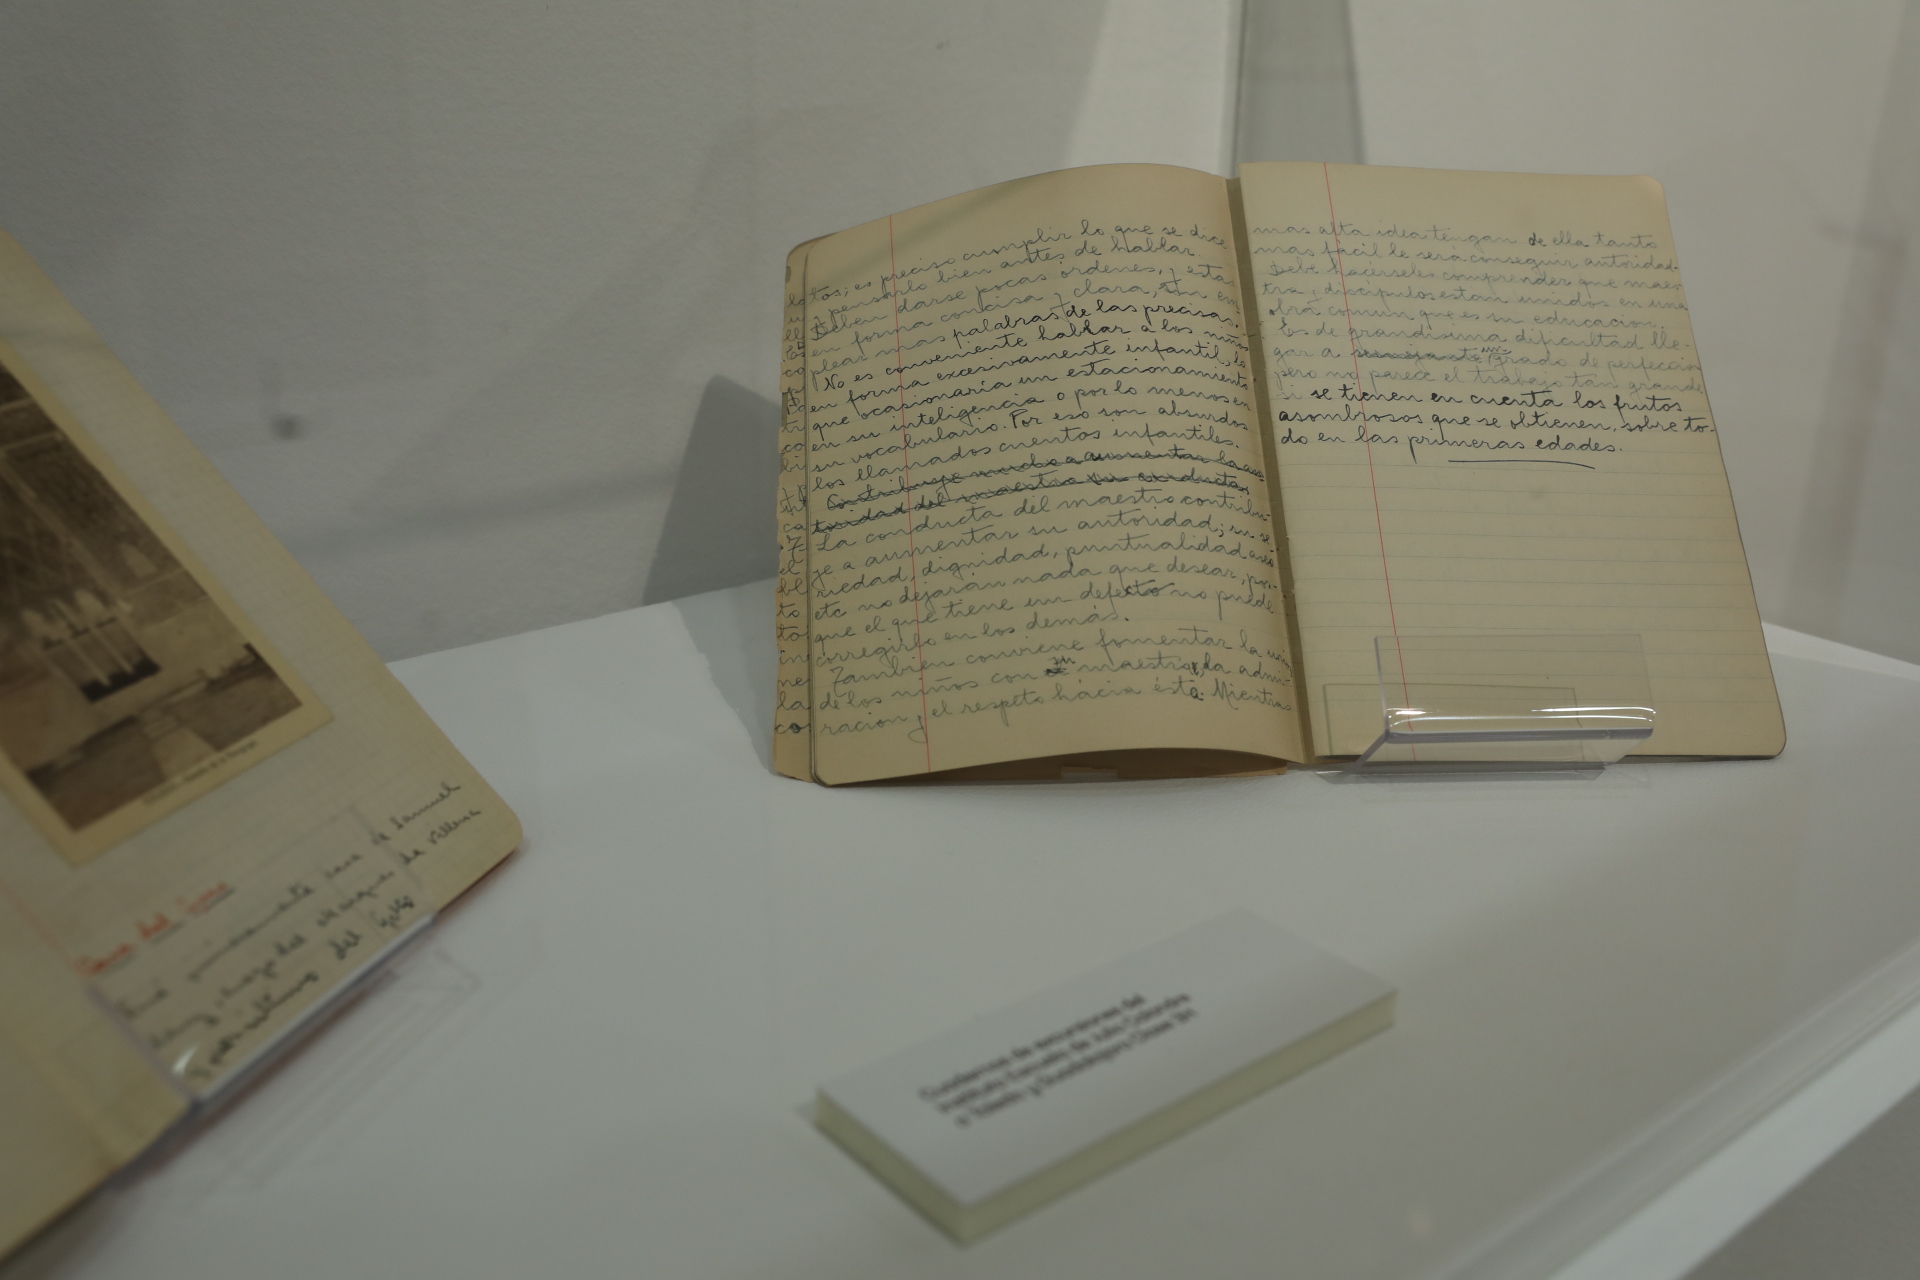 tos; es preciso cumplir lo que se dice
y pensarlo bien antes de hablar.
Deben darse pocas ordenes, y estas
en forma concisa y clara, sin em
plear mas palabras de las precisas.
No es conveniente hablar a los niños
en forma excesivamente infantil, lo
que ocasionaría un estacionamiento
en su inteligencia o por lo menos en
su vocabulario. Por eso son absurdos
los llamados cuentos infantiles.
Contribuye mucho a aumentar la au
toridad del maestro su conducta
La conducta del maestro contribu-
ye a aumentar su autoridad; su se-
riedad, dignidad, puntualidad aseo
etc no dejarán nada que desear, por-
que el que tiene un defecto no puede
corregirlo en los demás.
Tambien conviene fomentar la union
de los niños con su maestra, la admi-
racion y el respeto hácia ésta. Mientras
mas alta idea tengan de ella tanto
mas facil le será conseguir autoridad.
Debe hacerseles comprender que maes
tra y discipulos estan unidos en una
obra comun que es su educacion.
Es de grandisima dificultad lle-
gar a semejante grado de perfeccion
pero no parece el trabajo tan grande
si se tienen en cuenta los frutos
asombrosos que se obtienen, sobre to-
do en las primeras edades.
Casa del Greco
casa de Samuel
marques de Villena
del
Cuadernos de excursiones del
Instituto Escuela de Julia
a Toledo y Guadalajara